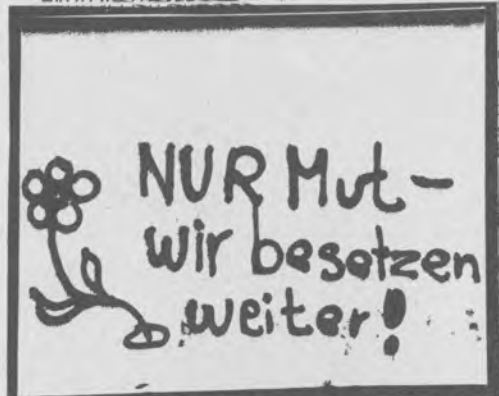 NUR Mut –
wir besetzen
weiter!